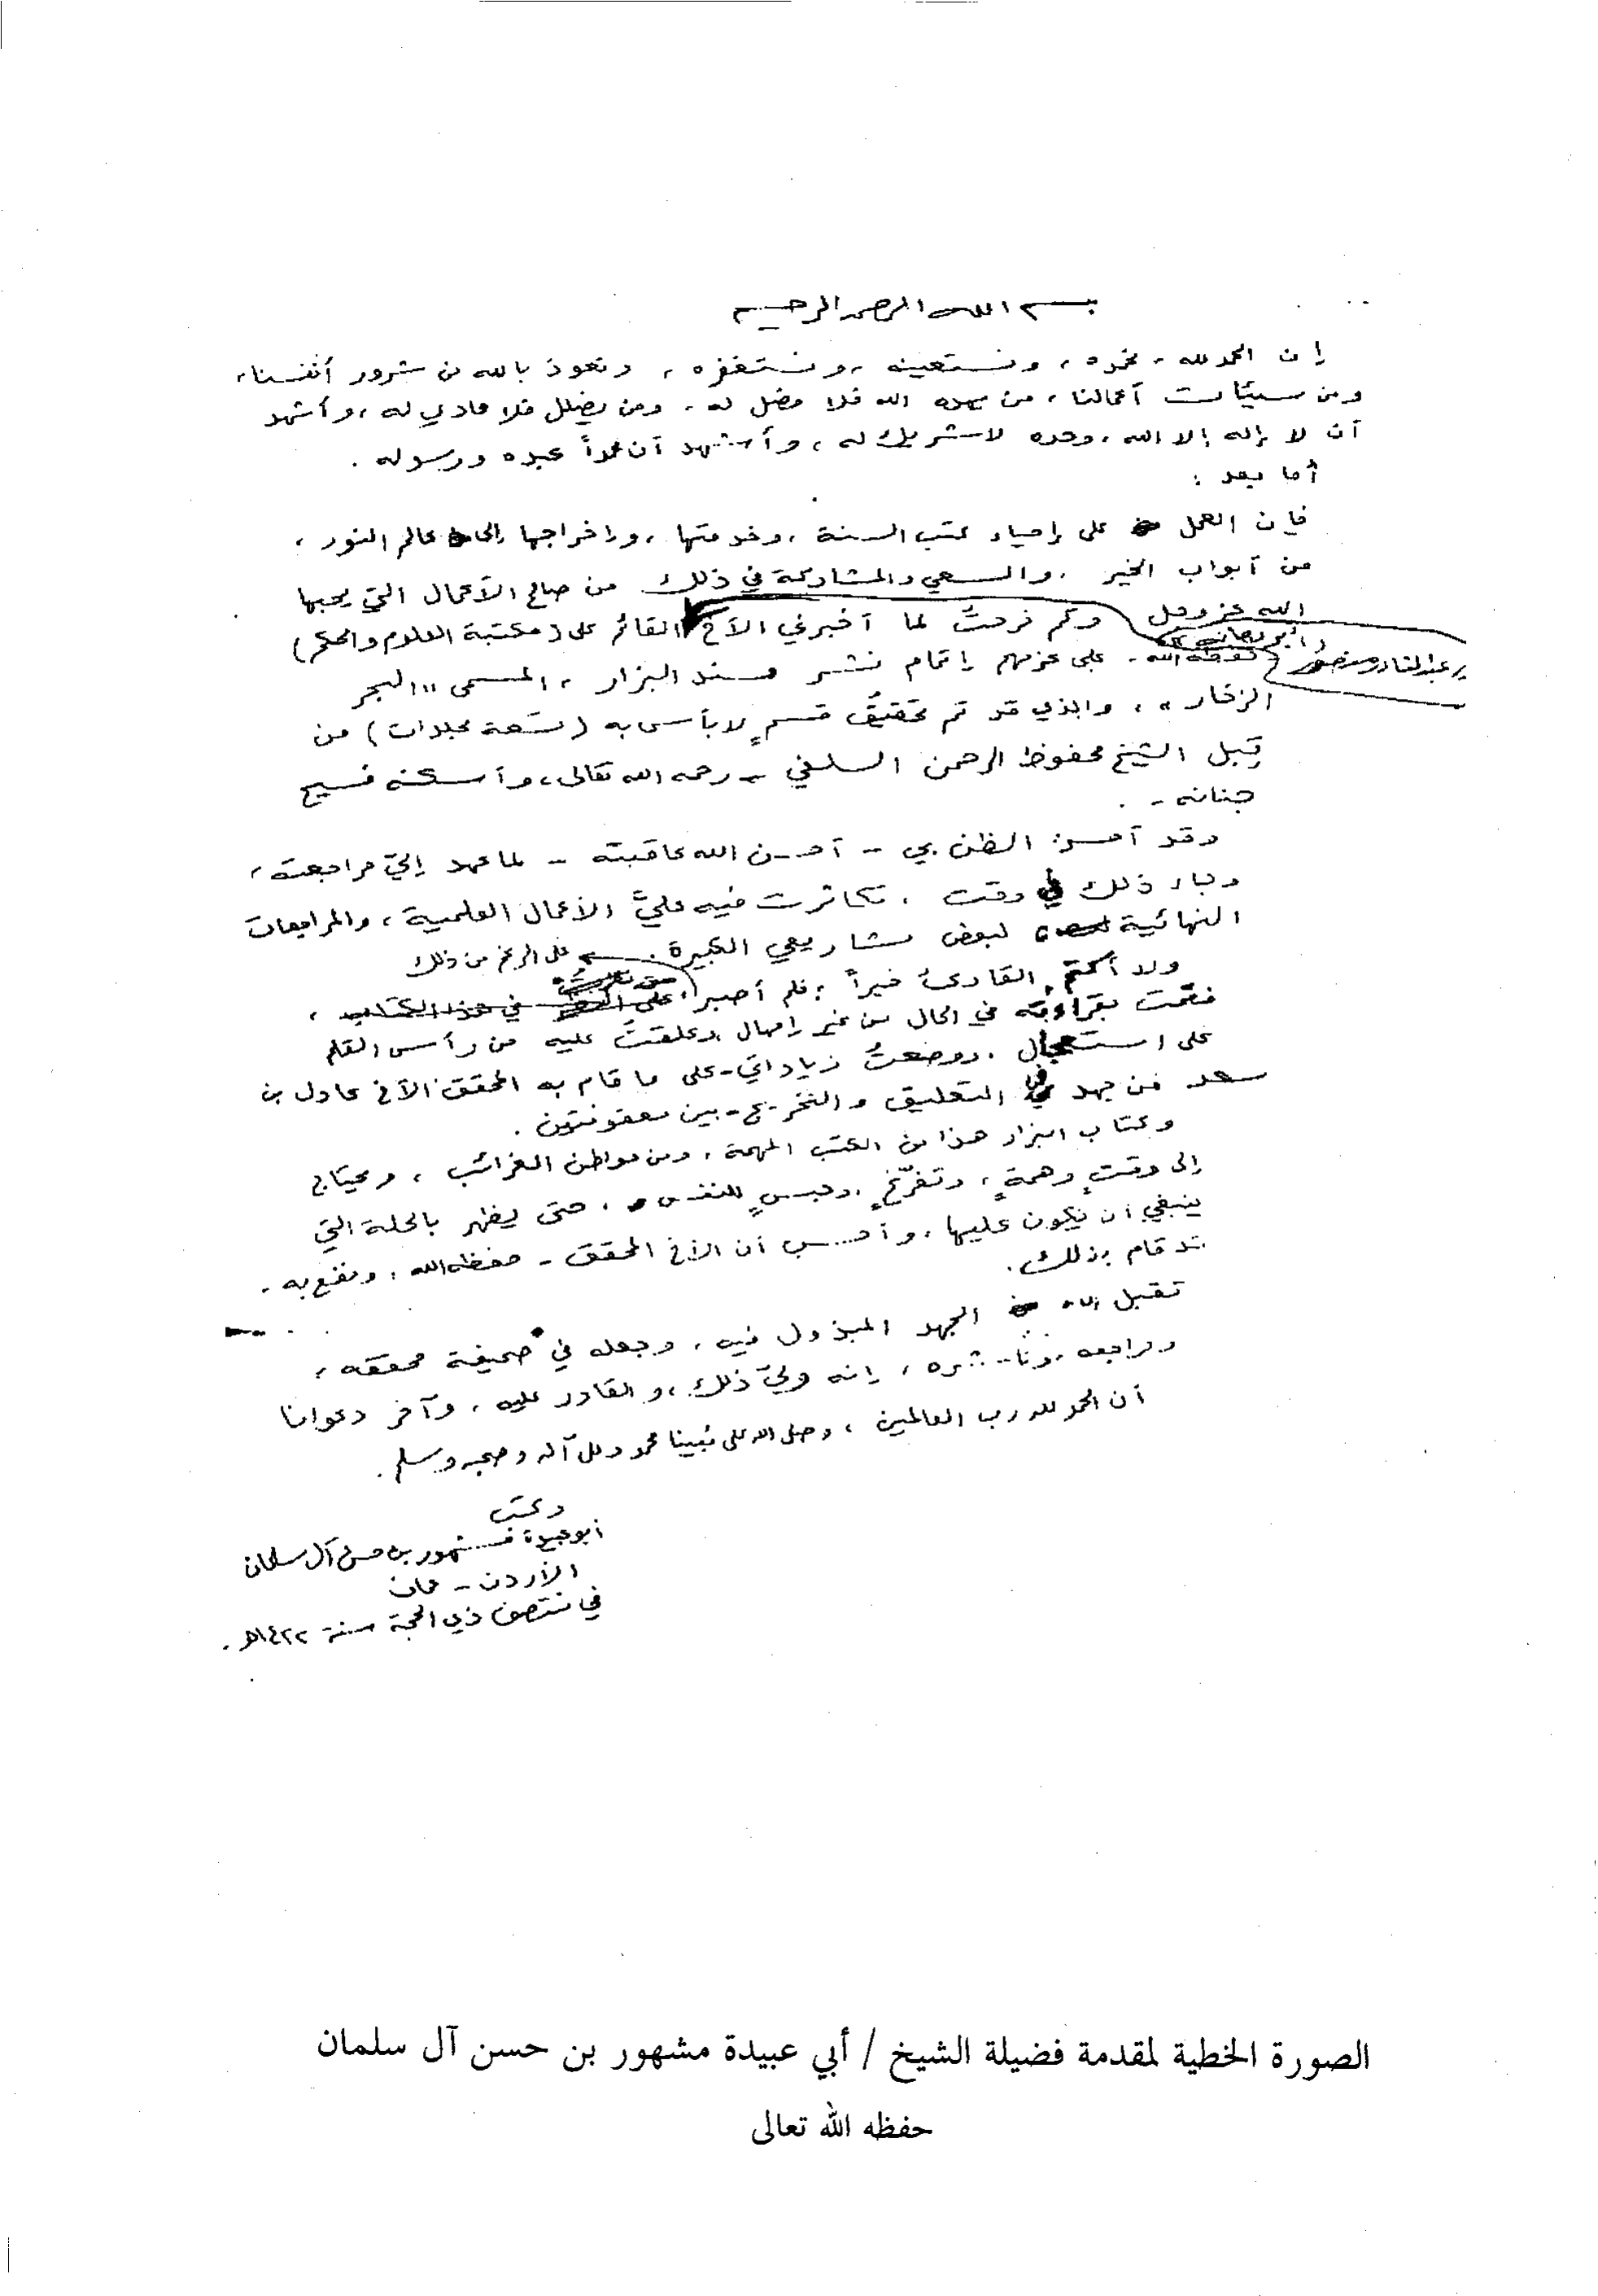 بسم الله الرحمن الرحيم
إن الحمد لله، نحمده، ونستعينه، ونستغفره، ونعوذ بالله من شرور أنفسنا،
ومن سيئات أعمالنا، من يهده الله فلا مضل له، ومن يضلل فلا هادي له، وأشهد
أن لا إله إلا الله، وحده لا شريك له، وأشهد أن محمداً عبده ورسوله.
أما بعد:
فإن العمل على إحياء كتب السنة، وخدمتها، وإخراجها إلى عالم النور،
من أبواب الخير، والسعي والمشاركة في ذلك من صالح الأعمال التي يحبها
الله عز وجل وكم فرحتُ لما أخبرني الأخ القائم على (مكتبة العلوم والحكم)
/ عبدالقادر منصور
حفظه الله - على عزمهم إتمام نشر مسند البزار، المسمى «البحر
الزخار»، والذي قد تم تحقيق قسمٍ لا بأس به (تسعة مجلدات) من
قِبل الشيخ محفوظ الرحمن السلفي - رحمه الله تعالى، وأسكنه فسيح
جنانه -.
وقد أحسن الظن بي - أحسن الله عاقبته - لما عهد إليّ مراجعته،
وجاء ذلك في وقت، تكاثرت فيه عليَّ الأعمال العلمية، والمراجعات
النهائية لبعض مشاريعي الكبيرة.
على الرغم من ذلك
ولا أكتم القارئ خبراً؛ فلم أصبر على في هذا الكتاب،
فقمت بقراءته في الحال من غير إمهال وعلقتُ عليه من رأس القلم
على استعجال، ووضعتُ زياداتي - على ما قام به المحقق الأخ عادل بن
سعد من جهد في التعليق والتخريج - بين معقوفتين.
وكتاب البزار هذا من الكتب المهمة، ومن مواطن الغرائب، ويحتاج
إلى وقتٍ وهمةٍ، وتفرّغٍ، وحبسٍ للنفس، حتى يظهر بالحلة التي
ينبغي أن يكون عليها، وأحسب أن الأخ المحقق - حفظه الله، ونفع به -
قد قام بذلك.
تقبل الله الجهد المبذول فيه، وجعله في صحيفة محققه،
ومراجعه، وناشره، إنه وليّ ذلك، والقادر عليه، وآخر دعوانا
أن الحمد لله رب العالمين، وصلى الله على نبينا محمد وعلى آله وصحبه وسلم.
وكتب
أبو عبيدة مشهور بن حسن آل سلمان
الأردن - عمان
في منتصف ذي الحجة سنة ١٤٢٢هـ.
الصورة الخطية لمقدمة فضيلة الشيخ / أبي عبيدة مشهور بن حسن آل سلمان
حفظه الله تعالى